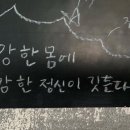 강한 몸에
강한 정신이 깃든다